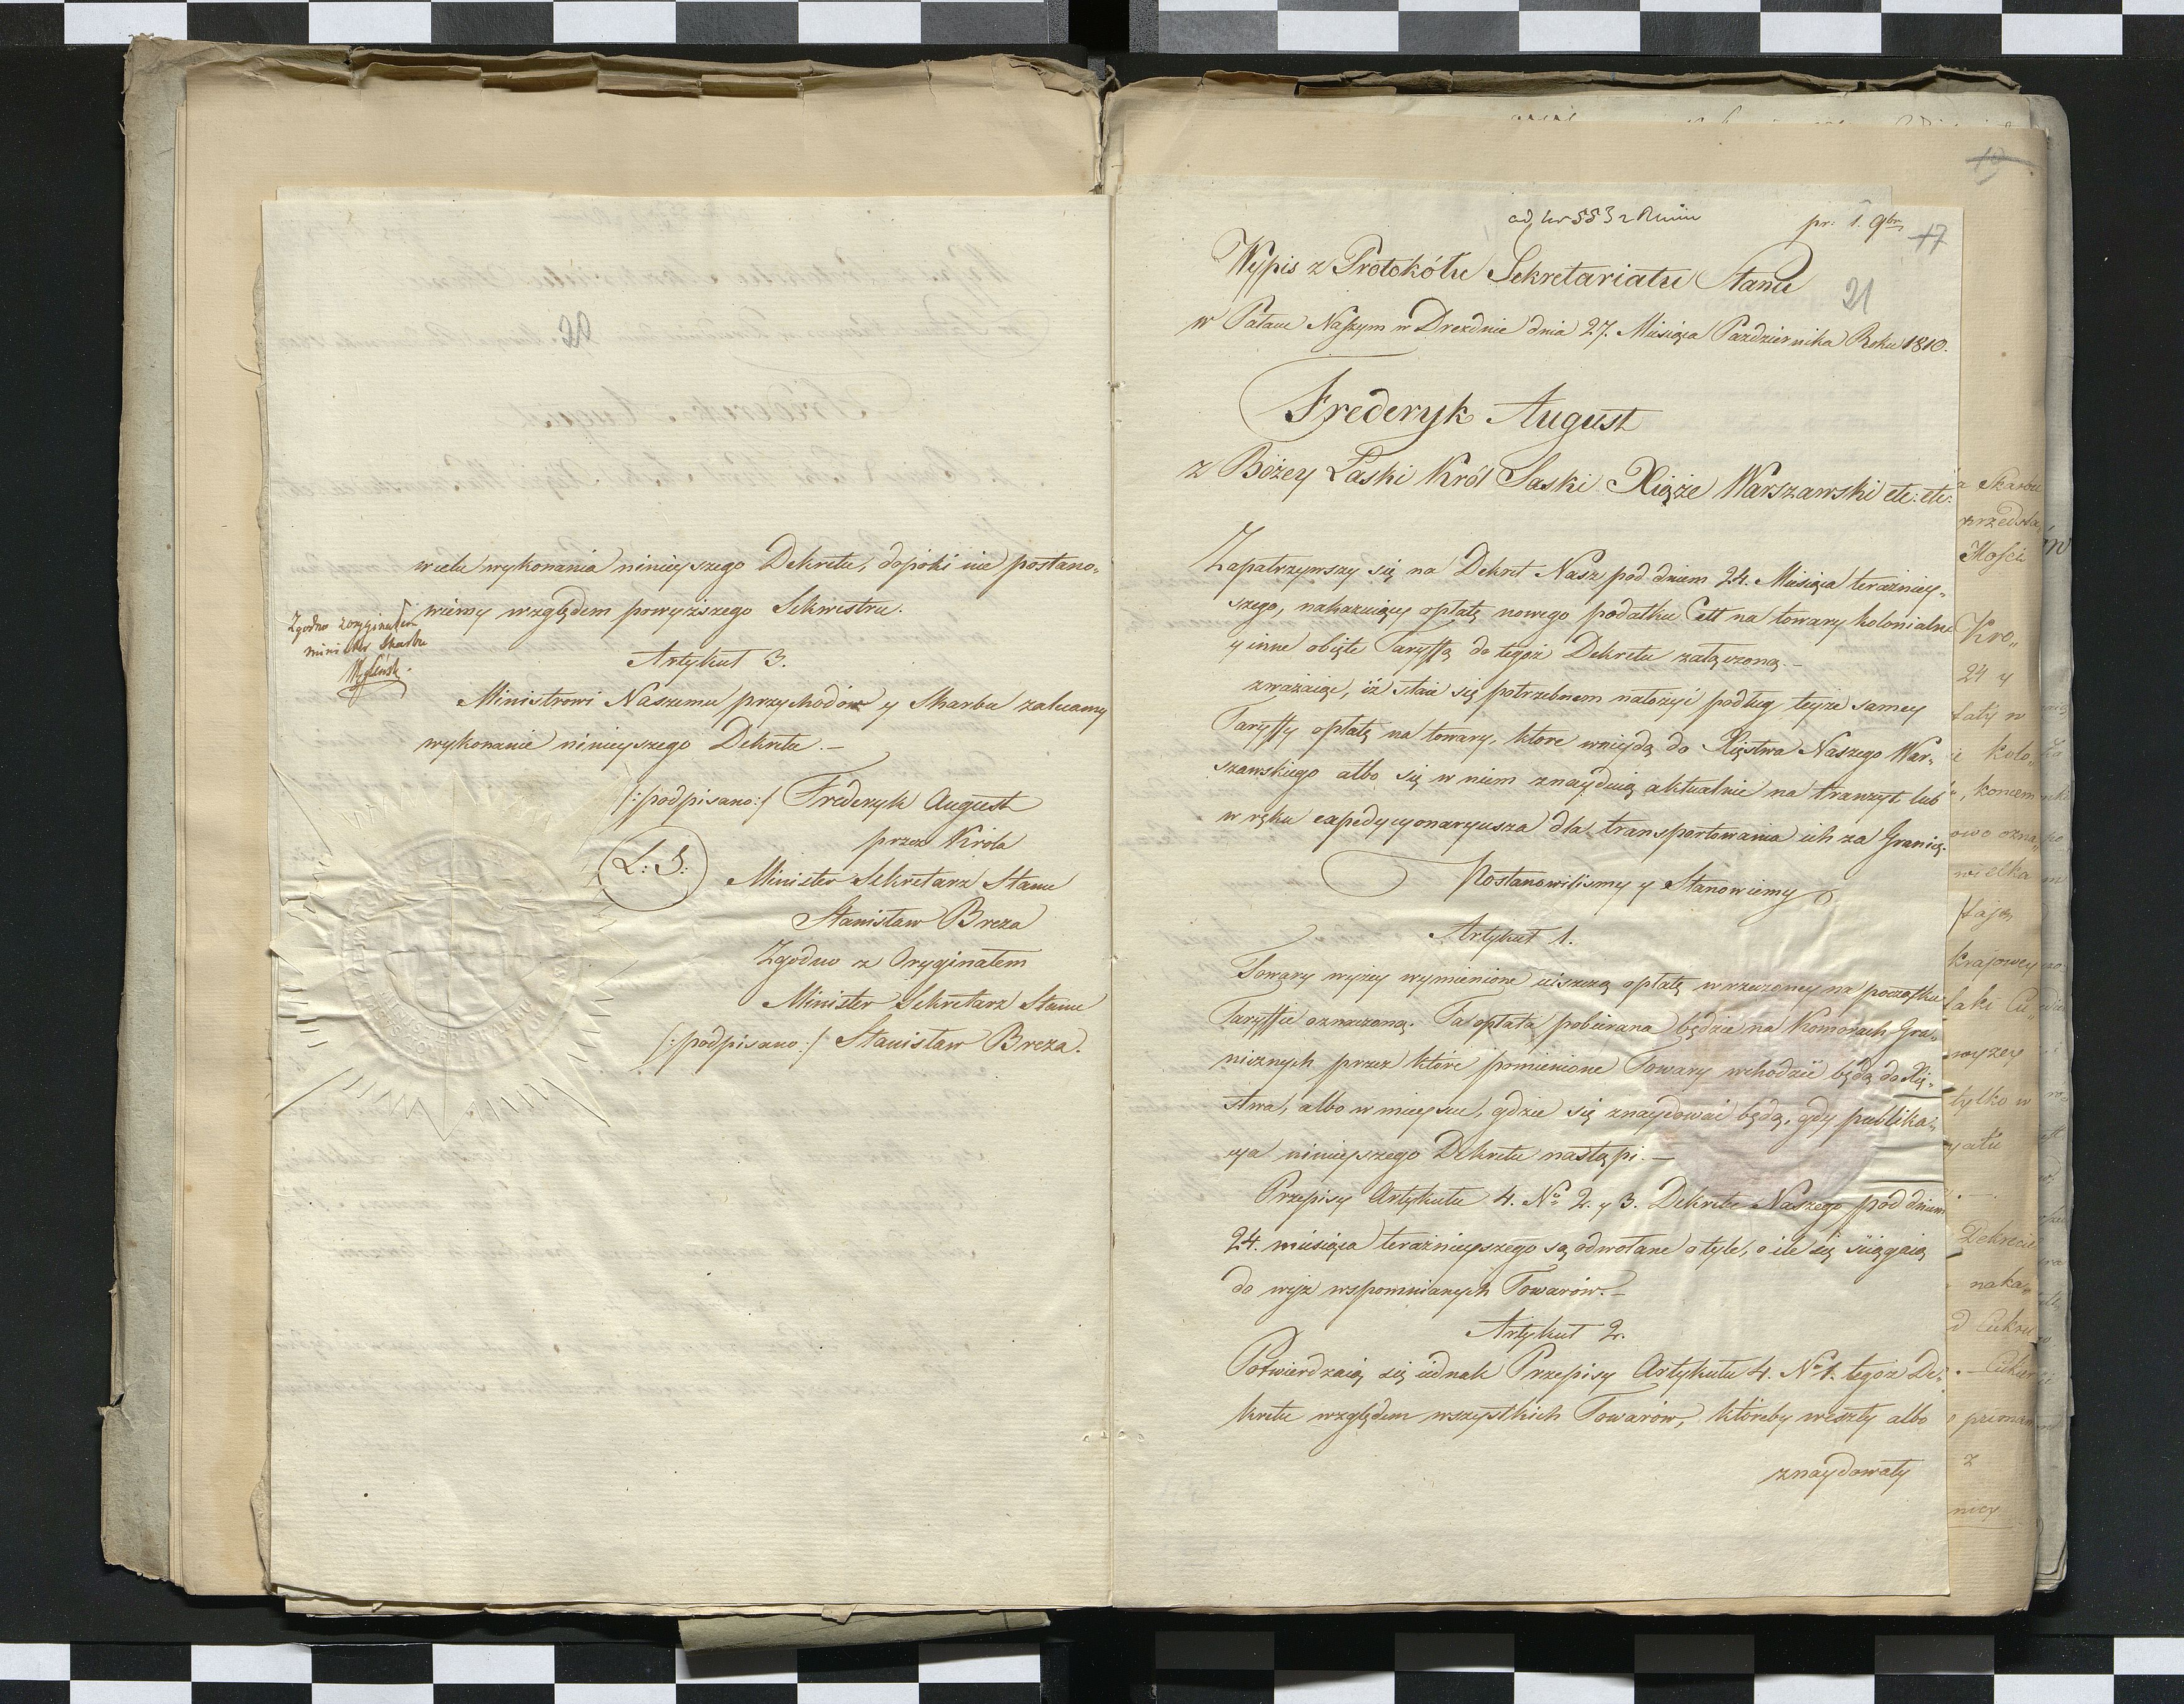 20
w celu wykonania ninieyszego Dekretu, dopóki nie postano„
wiemy względem powyższego Sekwestru.
Zgodno z oryginałem
minister Skarbu
Artykuł 3.
Ministrowi Naszemu przychodów y Skarbu zalecamy
wykonanie ninieyszego Dekretu.—
/:podpisano:/ Fryderyk August
przez Króla
L: S:
Minister Sekretarz Stanu
Stanisław Breza
Zgodno z Oryginałem
Minister Sekretarz Stanu
/:podpisano:/ Stanisław Breza.
19
pr: 1. 9br
17
Wypis z Protokółu Sekretariatu Stanu
21
w Pałacu Naszym w Dreźnie dnia 27. Miesiąca Pazdziernika Roku 1810.
Frederyk August
z Bożey Łaski Król Saski Xiąże Warszawski etc: etc:
Zapatrzywszy się na Dekret Nasz pod dniem 24. Miesiąca teraźniey„
szego, nakazuiący opłatę nowego podatku Cell na towary kolonialne
y inne obięte Taryffą do tegoż Dekretu załączoną.—
zważaiąc, iż staie się potrzebnem nałożyć podług teyże samey
Taryffy opłatę na towary, ktore wniydą do Xięstwa Naszego War„
szawskiego albo się w niem znayduią aktualnie na tranzyt lub
w ręku expedycyonaryusza dla transportowania ich za Granicę.
Postanowilismy y Stanowiemy
Artykuł 1.
Towary wyżey wymienione uiszczą opłatę w rzeczoney na początku
Taryffie oznaczoną. Ta opłata pobierana będzie na Komorach Gra„
nicznych przez które pomienione Towary wchodzić będą do Xię„
stwa, albo w mieyscu, gdzie się znaydować będą, gdy publika„
cya ninieyszego Dekretu nastąpi.—
Przepisy Artykułu 4. No 2. y 3. Dekretu Naszego pod dniem
24. miesiąca teraźnieyszego są odwołane o tyle, o ile się ściągaią
do wyż wspomnianych Towarów.—
Artykuł 2.
Potwierdzaią się iednak Przepisy Artykułu 4. No 1. tegoż De„
kretu względem wszystkich Towarów, któreby weszły albo
znaydowały